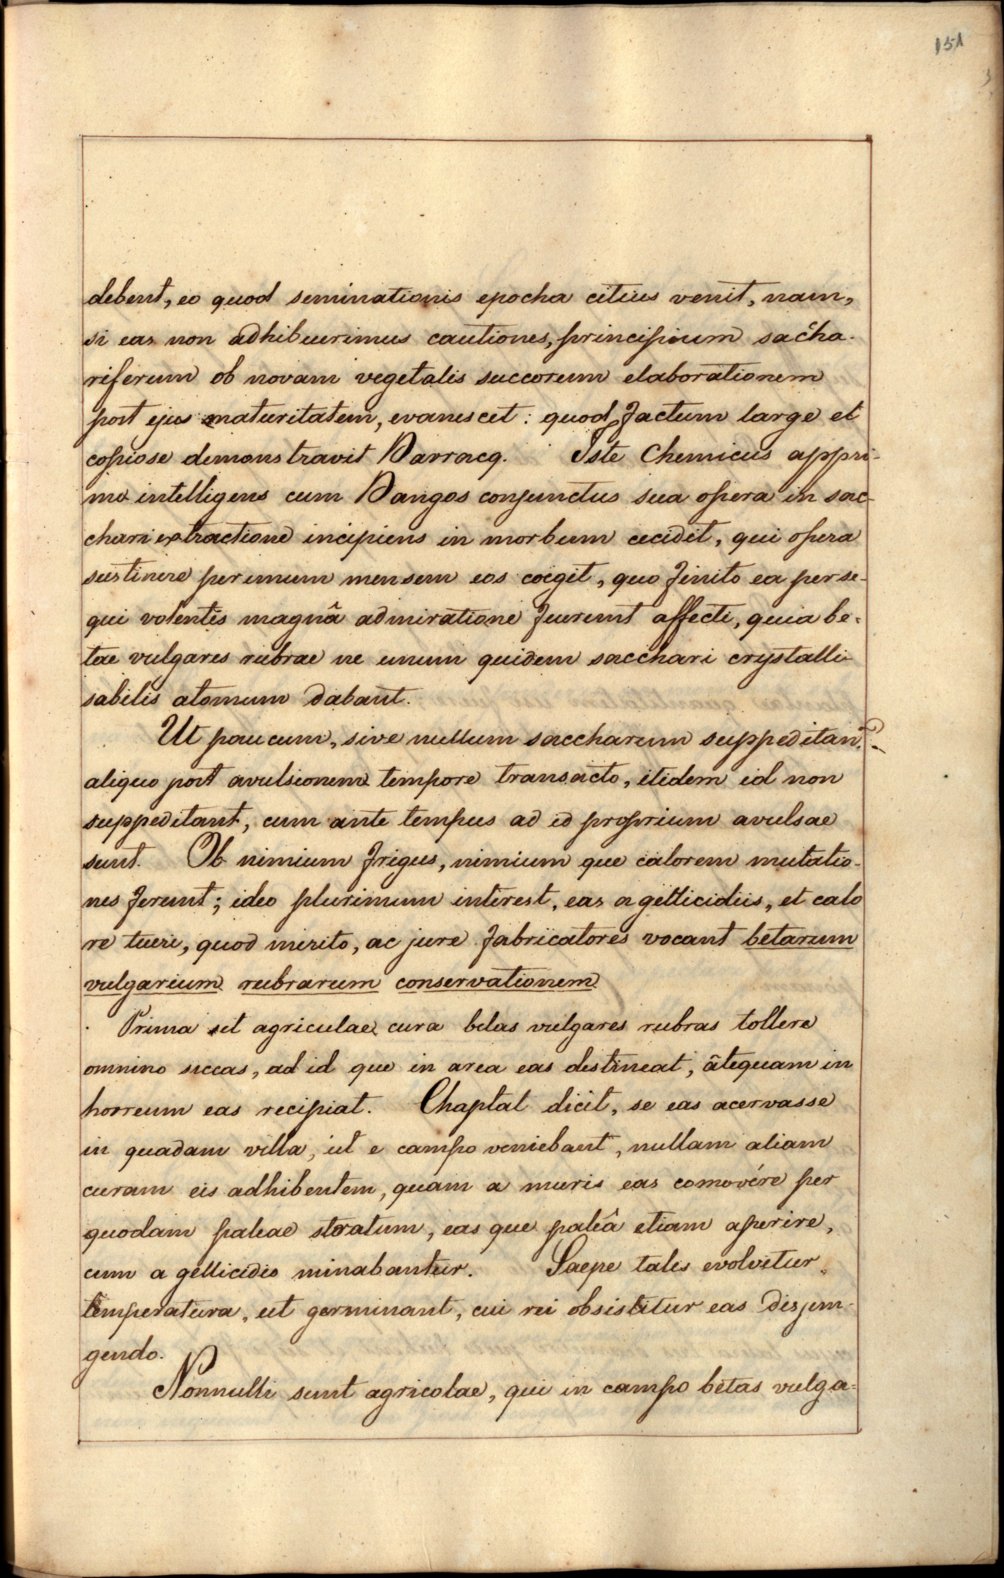 151
debent, eo quod seminationis epocha citius venit, nam,
si eas non adhibuerimus cautiones, principium sacha-
riferum ob novam vegetalis succorum elaborationem
post ejus maturitatem, evanescet: quod factum large et
copiose demonstravit Darracq. Iste Chemicus appri-
me intelligens cum Dangos conjunctus sua opera in sac-
chari extractione incipiens in morbum cecidit, qui opera
sustinere per unum mensem eos coegit, quo finito ea perse-
qui volentes magnâ admiratione fuerunt affecti, quia be-
tae vulgares rubrae ne unum quidem sacchari crystalli
sabilis atomum dabant.
Ut paucum, sive nullum saccharum suppeditant
aliquo post avulsionem tempore transacto, itidem id non
suppeditant, cum ante tempus ad id proprium avulsae
sunt. Ob nimium frigus, nimium que calorem mutatio-
nes ferunt; ideo plurimum interest, eas a gellicidiis, et calo
re tueri, quod merito, ac jure fabricatores vocant betarum
vulgarium rubrarum conservationem
Prima sit agriculae cura betas vulgares rubras tollere
omnino siccas, ad id que in area eas destineat, âtequam in
horreum eas recipiat. Chaptal dicit, se eas acervasse
in quadam villa, ut e campo veniebant, nullam aliam
curam eis adhibentem, quam a muris eas comovére per
quodam paleae storatum, eas que paleâ etiam aperire,
cum a gellicidio minabantur. Saepe tales evolvitur
temperatura, ut germinant, cui rei obsistitur eas disjun-
gendo.
Nonnulli sunt agricolae, qui in campo betas vulga-